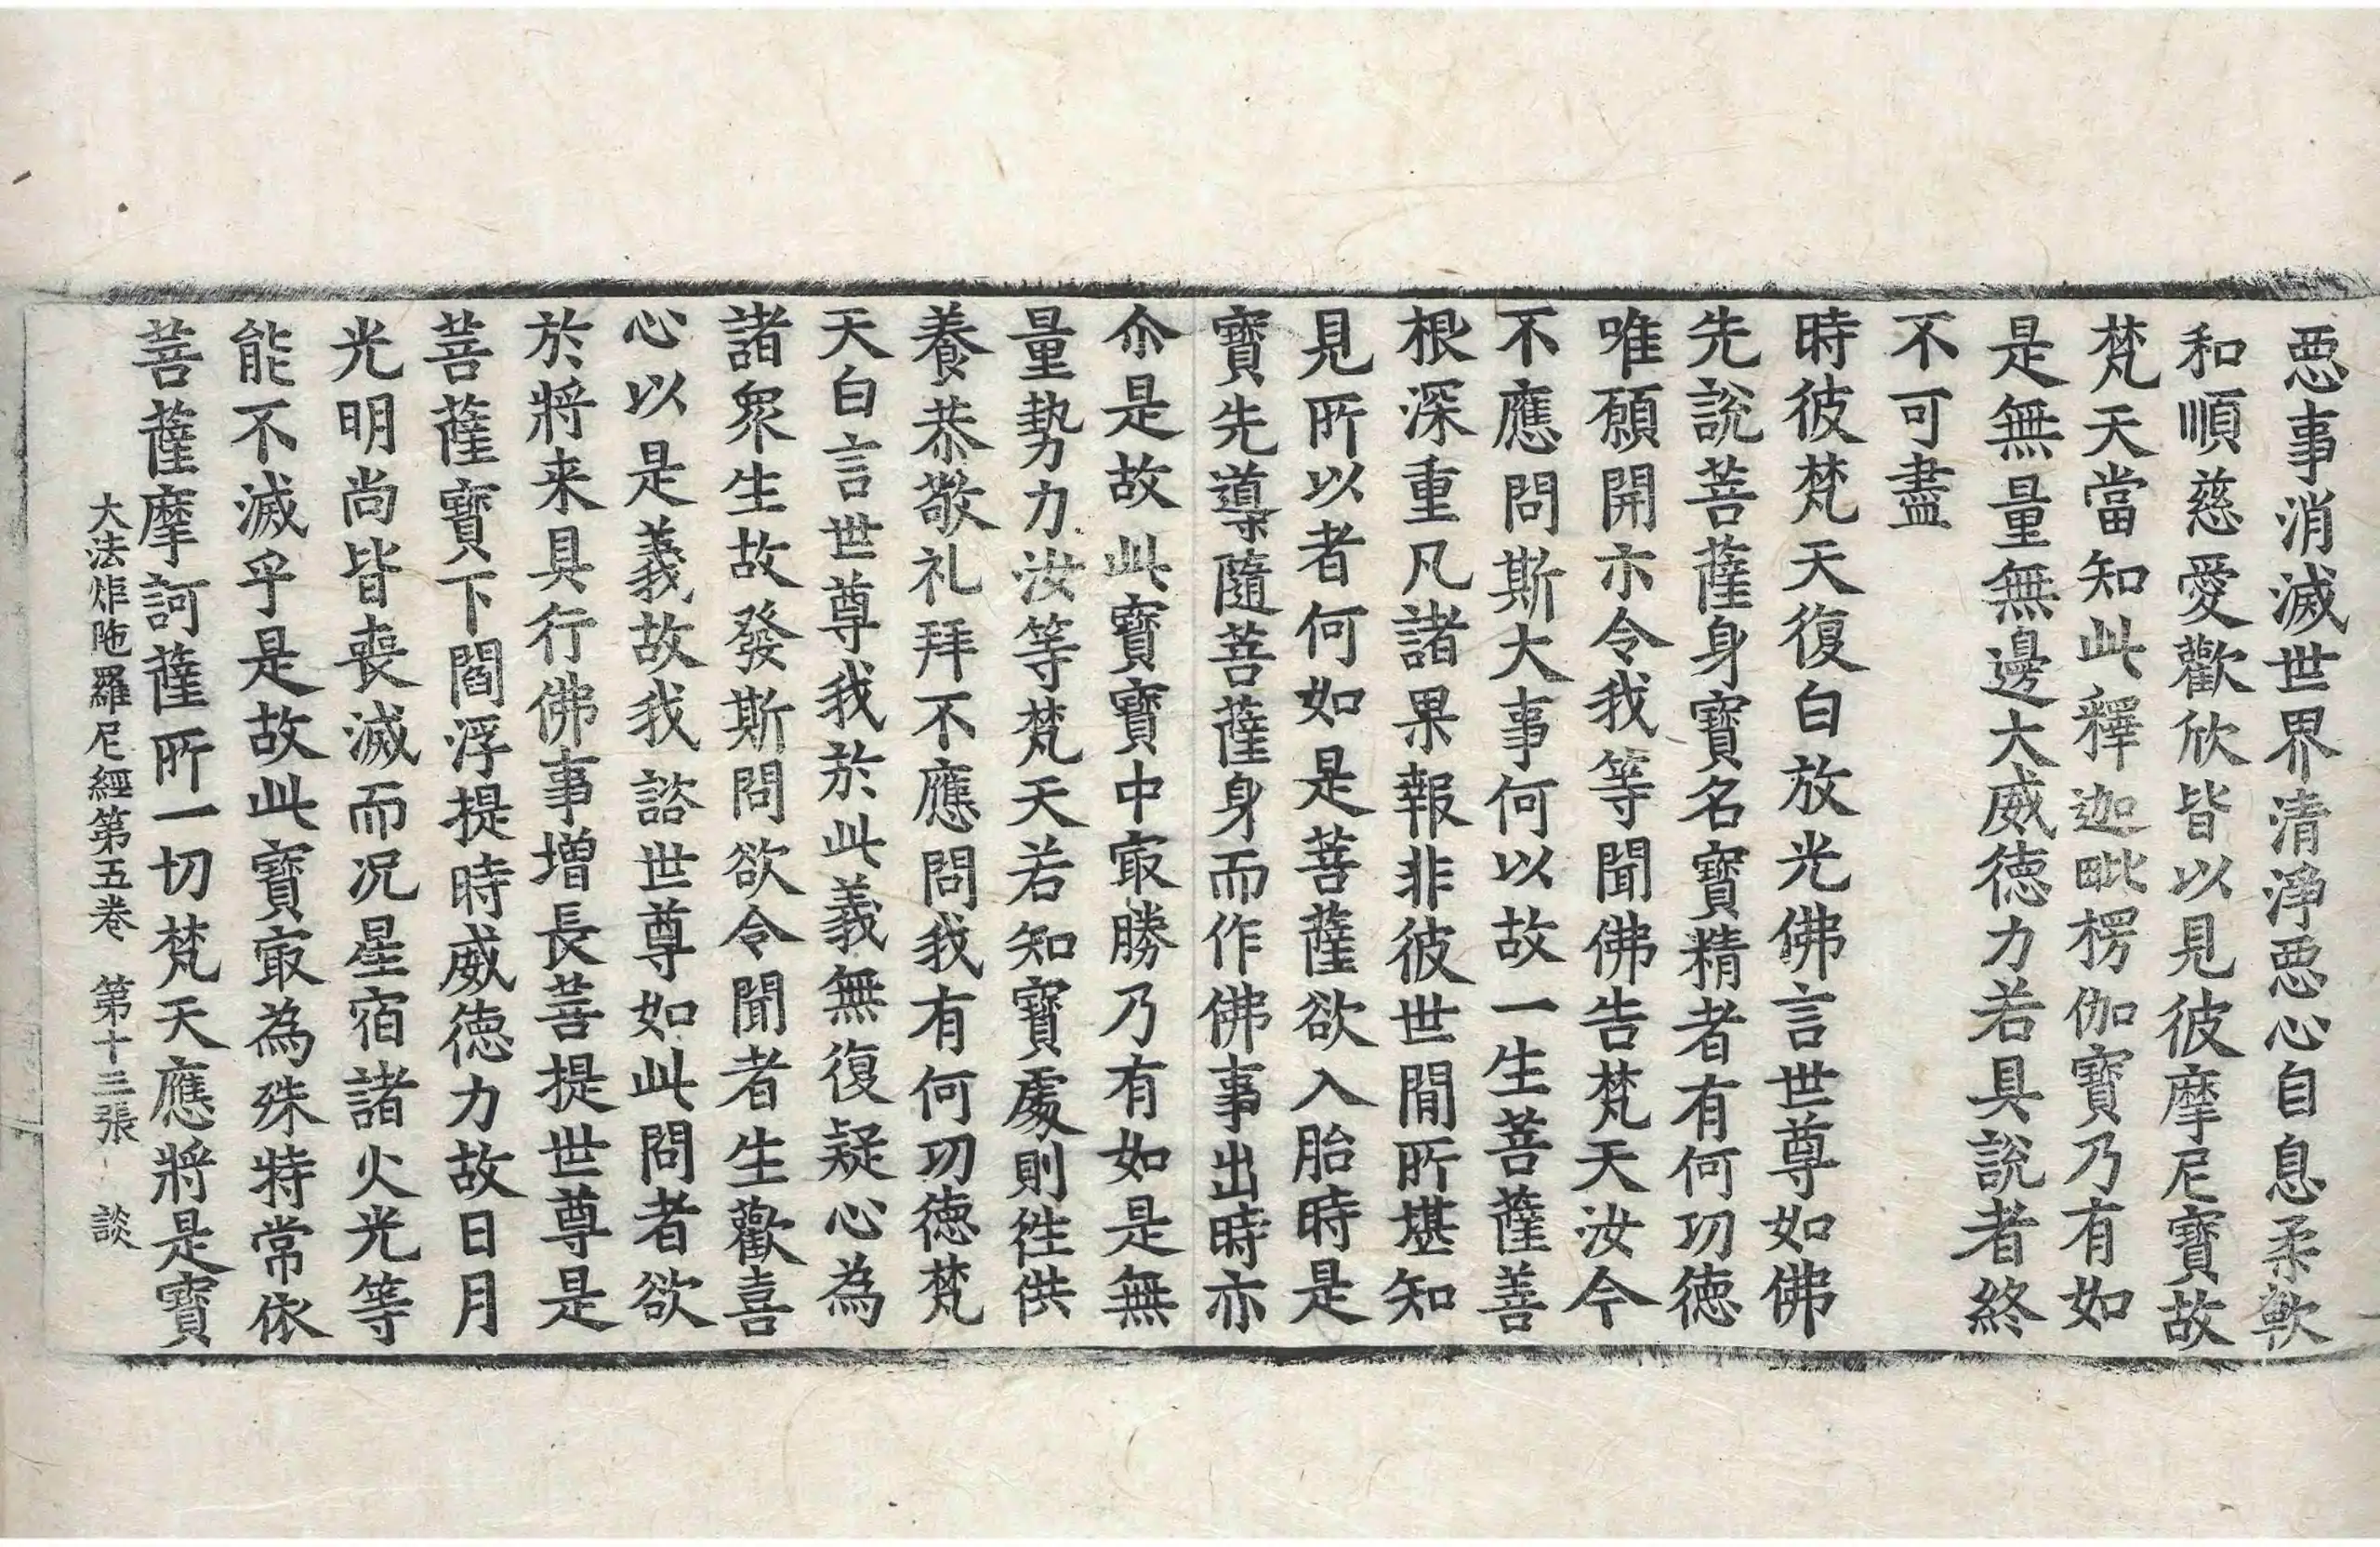 惡事消滅世界清淨惡心自息柔軟
和順慈愛歡欣皆以見彼摩尼寶故
梵天當知此釋迦毗楞伽寶乃有如
是無量無邊大威德力若具說者終
不可盡
時彼梵天復白放光佛言世尊如佛
先說菩薩身寶名寶精者有何功德
唯願開示令我等聞佛告梵天汝今
不應問斯大事何以故一生菩薩善
根深重凡諸果報非彼世間所堪知
見所以者何如是菩薩欲入胎時是
寶先導隨菩薩身而作佛事出時亦
尒是故此寶寶中㝡勝乃有如是無
量勢力汝等梵天若知寶處則徃供
養恭敬礼拜不應問我有何功德梵
天白言世尊我於此義無復疑心為
諸眾生故發斯問欲令聞者生歡喜
心以是義故我諮世尊如此問者欲
於將来具行佛事增長菩提世尊是
菩薩寶下閻浮提時威德力故日月
光明尚皆喪滅而况星宿諸火光等
能不滅乎是故此寶㝡為殊特常依
菩薩摩訶薩所一切梵天應將是寶
大法炬陁羅尼經第五卷 第十三張 談